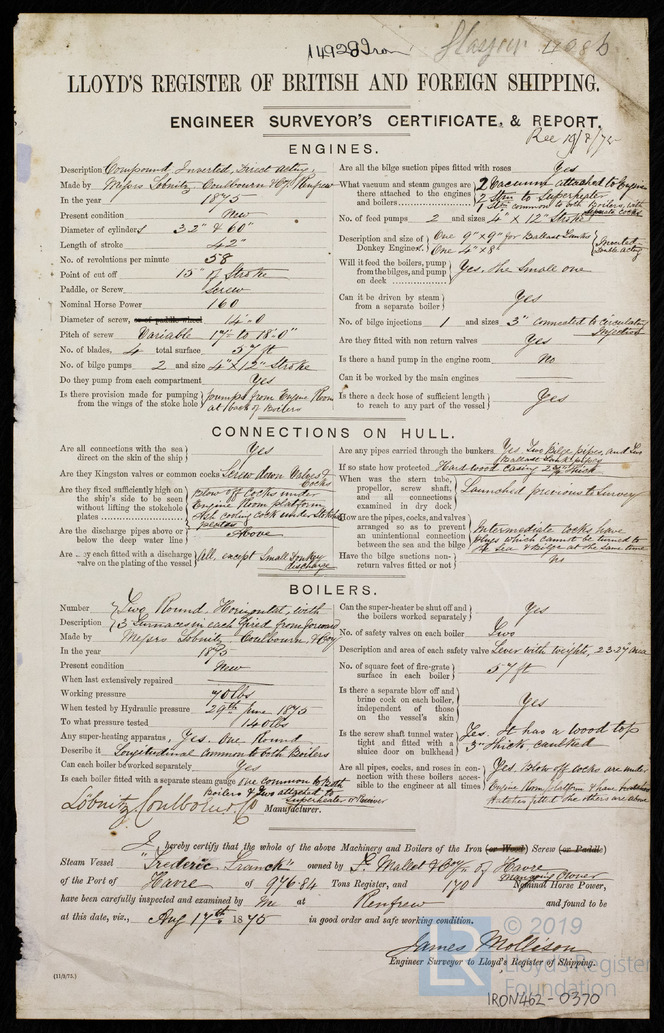 14928 Iron Glasgow 11086
LLOYD'S REGISTER OF BRITISH AND FOREIGN SHIPPING.
ENGINEER SURVEYOR'S CERTIFICATE & REPORT.
Rec 19/8/75
ENGINES.
Description Compound, Inverted, Direct acting,
Made by Messrs Lobnitz, Coulbourn & Coy Renfrew
In the year 1875
Present condition New
Diameter of cylinders 32" & 60"
Length of stroke 42"
No. of revolutions per minute 58
Point of cut off 15" of Stroke
Paddle, or Screw Screw
Nominal Horse Power 160
Diameter of screw, or of paddle wheel 14'-0
Pitch of screw Variable 17'- to 18'-0"
No. of blades, 4 total surface 57 ft
No. of bilge pumps 2 and sizes 4" x 12" Stroke
Do they pump from each compartment Yes
Is there provision made for pumping from the wings of the stoke hole pumps from Engine Room at back of Boilers
Are all the bilge suction pipes fitted with roses Yes
What vacuum and steam gauges are there attached to the engines and boilers 2 Vacuum attached to Engine
2 Stm to Superheater
1 Stm common to both Boilers, with separate cocks
No. of feed pumps 2 and sizes 4" x 12" Stroke
Description and size of Donkey Engines. One 9" x 9" for Ballast Tanks
One 4" x 8" Inverted Double acting
Will it feed the boilers, pump from the bilges, and pump on deck Yes. the Small one
Can it be driven by steam from a separate boiler Yes
No. of bilge injections 1 and sizes 3" connected to circulating Injection
Are they fitted with non return valves Yes
Is there a hand pump in the engine room No
Can it be worked by the main engines
Is there a deck hose of sufficient length to reach to any part of the vessel Yes
CONNECTIONS ON HULL.
Are all connections with the sea direct on the skin of the ship Yes
Are they Kingston valves or common cocks Screw down Valves & Cocks
Are they fixed sufficiently high on the ship's side to be seen without lifting the stokehole plates Blow off Cocks under Engine Room platform
Ash cooling cock under Stokehole plates
Are the discharge pipes above or below the deep water line Above
Are they each fitted with a discharge valve on the plating of the vessel All, except Small Donkey discharge
Are any pipes carried through the bunkers. Yes Two Bilge pipes, and Two Ballast Tank pipes
If so state how protected Hard wood casing thick
When was the stern tube, propeller, screw shaft, and all connections examined in dry dock Launched previous to Survey
How are the pipes, cocks, and valves arranged so as to prevent an unintentional connection between the sea and the bilge Intermediate Cocks have plugs which cannot be turned to the Sea & Bilge at the same time
Have the bilge suctions non-return valves fitted or not No
BOILERS.
Number Two Round, Horizontal, with
Description 3 Furnaces in each fired from forward
Made by Messrs Lobnitz Coulbourn & Coy
In the year 1875
Present condition New
When last extensively repaired
Working pressure 70 lbs
When tested by Hydraulic pressure 29th June 1875
To what pressure tested 140 lbs
Any super-heating apparatus, Yes. One Round
Describe it Longitudinal Common to both Boilers
Can each boiler be worked separately Yes
Is each boiler fitted with a separate steam gauge One common to Both Boilers & Two attached to Superheater or Receiver
Löbnitz, Coulbourn & Co Manufacturer.
Can the super-heater be shut off and the boilers worked separately Yes
No. of safety valves on each boiler Two
Description and area of each safety valve Lever with Weights, 23.27" area
No. of square feet of fire-grate surface in each boiler 57 ft
Is there a separate blow off and brine cock on each boiler, independent of those on the vessel's skin Yes
Is the screw shaft tunnel water tight and fitted with a sluice door on bulkhead Yes. It has a wood top 3" thick, caulked
Are all pipes, cocks, and roses in connection with these boilers accessible to the engineer at all times Yes Blow off cocks are under Engine Room platform & have hatches fitted the others are above
I, hereby certify that the whole of the above Machinery and Boilers of the Iron (or Wood) Screw (or Paddle)
Steam Vessel "Frederic Franck" owned by F. Mallet & Coy of Havre
Managing Owner
of the Port of Havre of 976.84 Tons Register, and 170 Nominal Horse Power,
have been carefully inspected and examined by me at Renfrew and found to be
at this date, viz., Aug 17th 1875 in good order and safe working condition.
James Mollison
Engineer Surveyor to Lloyd's Register of Shipping.
(11/3/75.)
LR © 2019
Lloyd's Register
Foundation
IRON462-0370